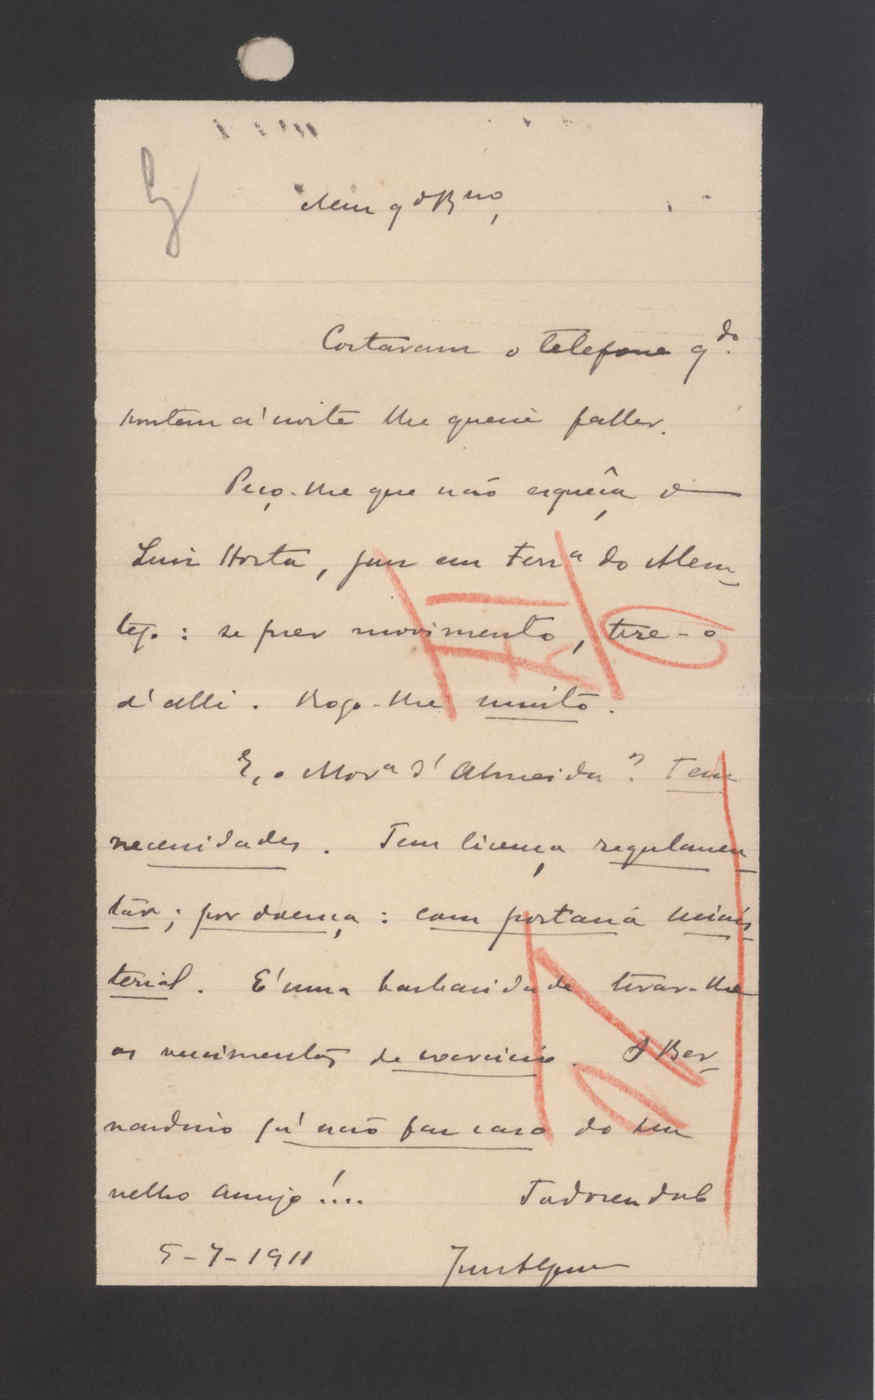 Meu q.do B.no,
Cortaram o telefone q.do
hontem á noite lhe queria fallar.
Peço-lhe que não esqueça o
Luiz Horta, juiz em Ferr.a do Alem-
tejo: se fizer movimento, tire-o
d'alli. Rogo-lhe muito.
E, o Mor.a d'Almeida? Tem
necessidades. Tem licença regulamen-
tar; por doença: com portaria minis-
terial. É uma barbaridade tirar-lhe
os vencimentos de exercicio. O Ber-
nardino já não faz caso do seu
velho amigo!...
5-7-1911